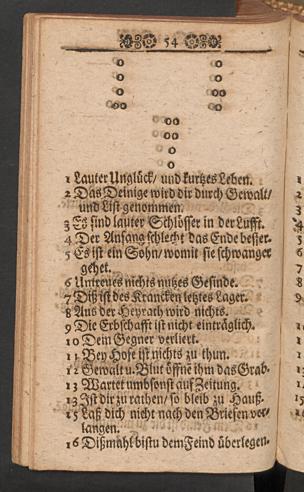 54
1 Lauter Unglück/ und kurtzes Leben.
2 Das Deinige wird dir durch Gewalt/
und List genommen.
3 Es sind lauter Schlösser in der Lufft.
4 Der Anfang schlecht das Ende besser.
5 Es ist ein Sohn/ womit sie schwanger
gehet.
6 Untreues nichts nutzes Gesinde.
7 Diß ist des Krancken letztes Lager.
8 Aus der Heyrath wird nichts.
9 Die Erbschafft ist nicht einträglich.
10 Dem Gegner verliert.
11 Bey Hofe ist nichts zu thun.
12 Gewalt u. Blut öffne ihm das Grab.
13 Wartet umbsonst auf Zeitung.
13 Ist dir zu rathen/ so bleib zu Hauß.
15 Laß dich nicht nach den Briefen ver-
langen.
16 Dißmahl bistu dem Feind überlegen.